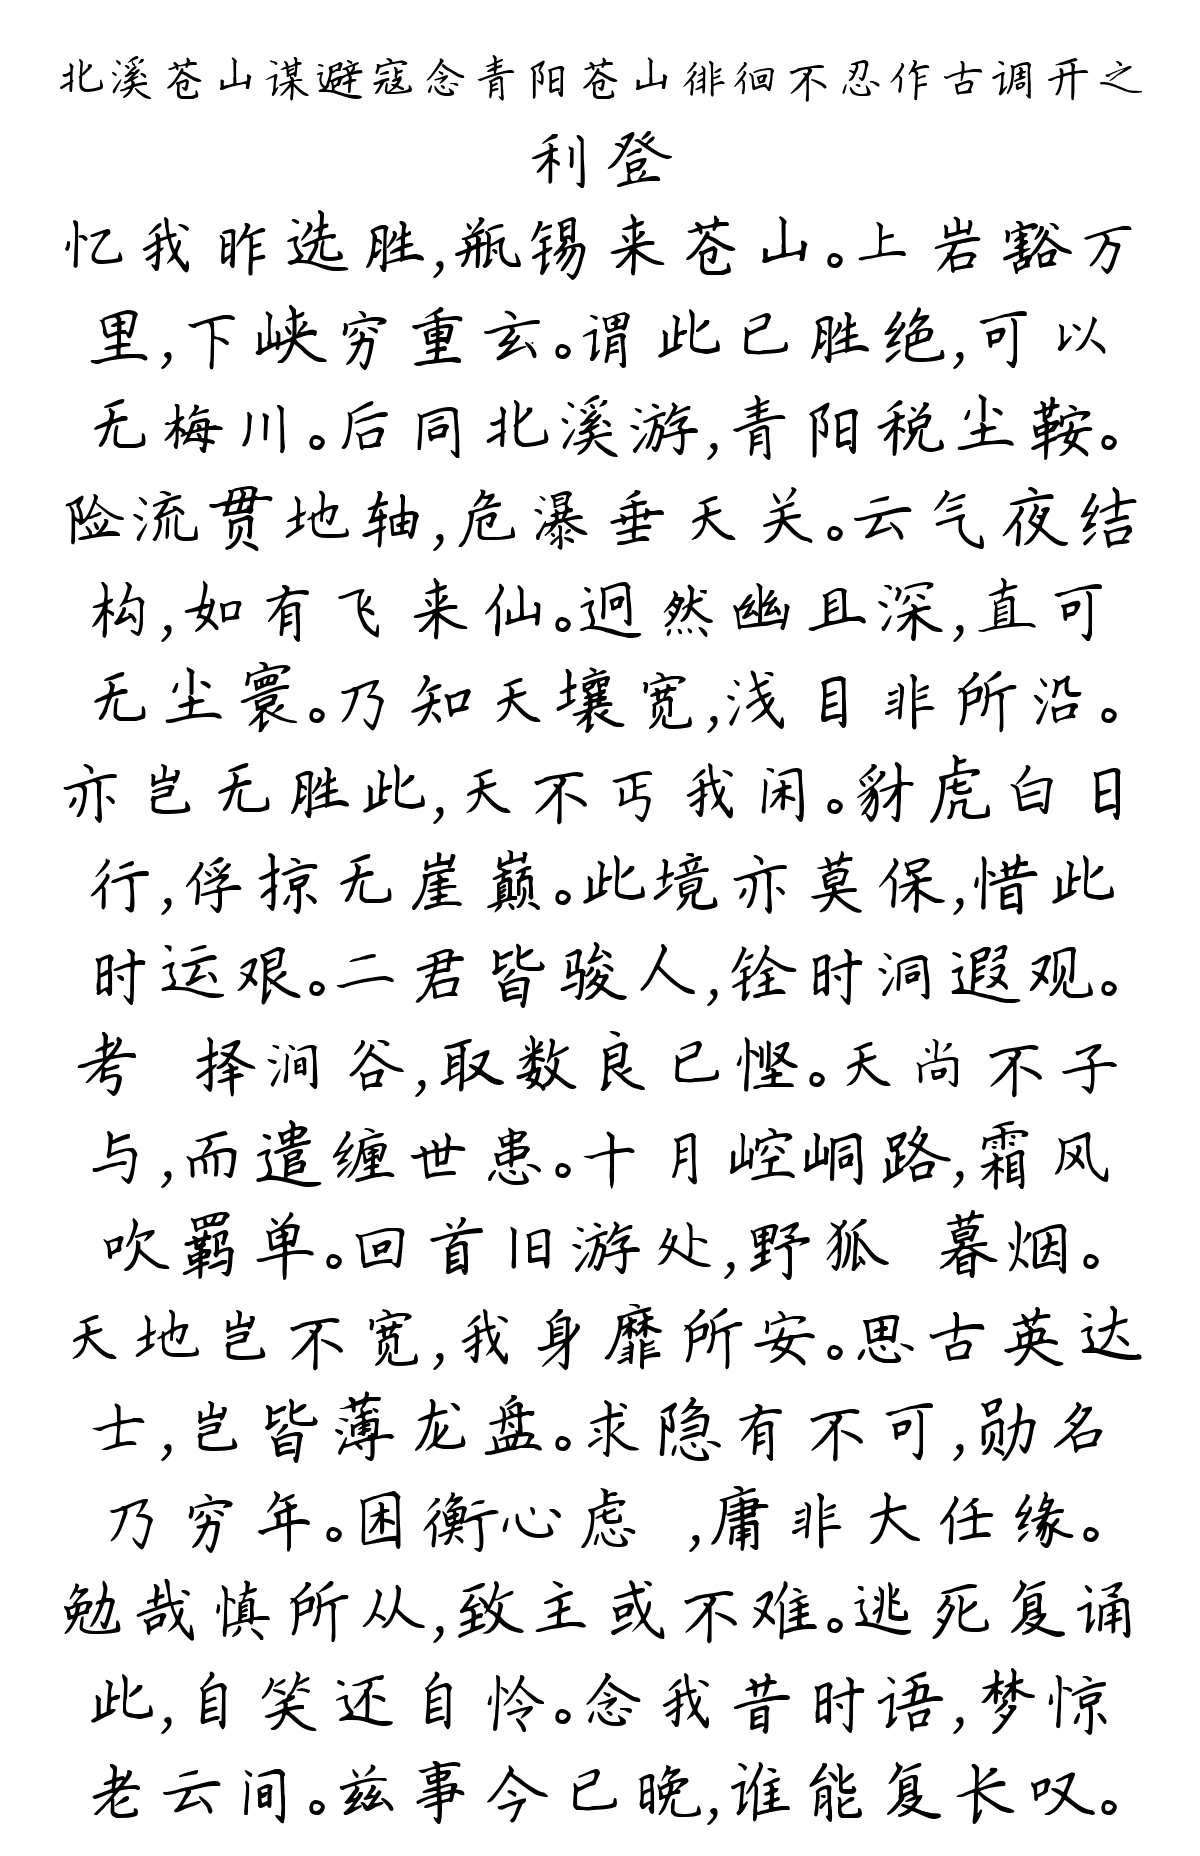 北溪苍山谋避寇念青阳苍山徘徊不忍作古调开之
利登
忆我昨选胜,瓶锡来苍山。上岩豁万
里,下峡穷重玄。谓此已胜绝,可以
无梅川。后同北溪游,青阳税尘鞍。
险流贯地轴,危瀑垂天关。云气夜结
构,如有飞来仙。迥然幽且深,直可
无尘寰。乃知天壤宽,浅目非所沿。
亦岂无胜此,天不丐我闲。豺虎白日
行,俘掠无崖巅。此境亦莫保,惜此
时运艰。二君皆骏人,铨时洞遐观。
考 择涧谷,取数良已悭。天尚不予
与,而遣缠世患。十月崆峒路,霜风
吹羁单。回首旧游处,野狐 暮烟。
天地岂不宽,我身靡所安。思古英达
士,岂皆薄龙盘。求隐有不可,勋名
乃穷年。困衡心虑 ,庸非大任缘。
勉哉慎所从,致主或不难。逃死复诵
此,自笑还自怜。念我昔时语,梦惊
老云间。兹事今已晚,谁能复长叹。